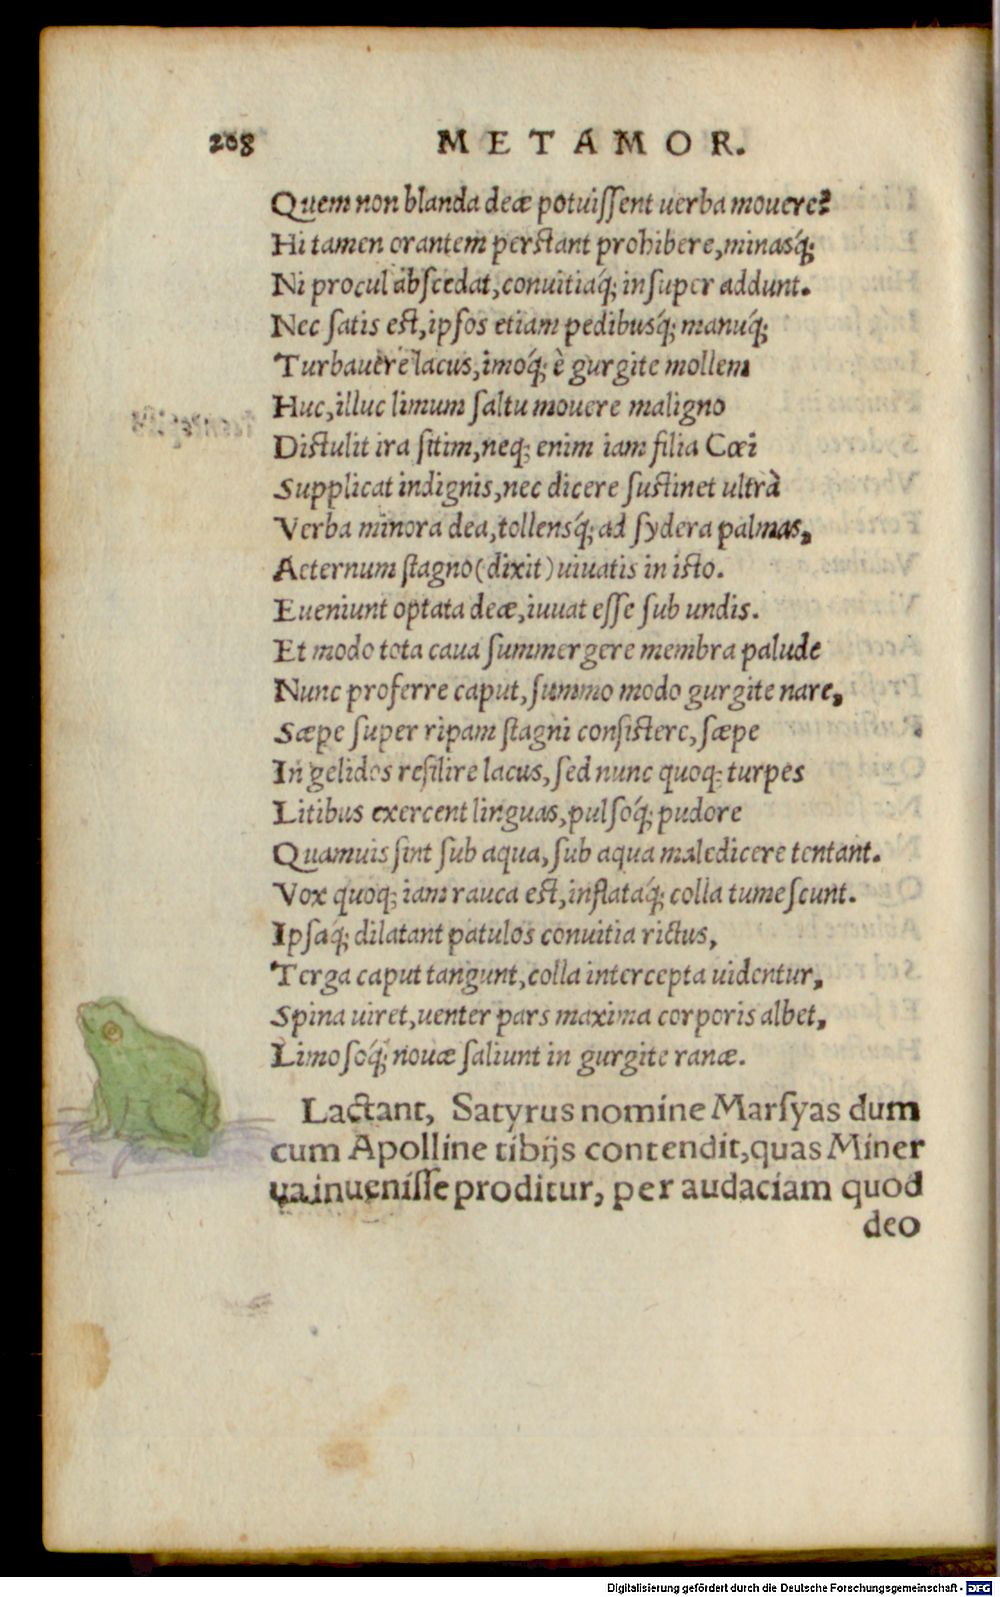 208 METAMOR.
Quem non blanda deæ potuiſſent uerba mouere?
Hi tamen orantem perstant prohibere, minasq́;
Ni procul abſcedat, conuitiaq́; inſuper addunt.
Nec ſatis est, ipſos etiam pedibusq́; manuq́;
Turbauere lacus, imoq́; è gurgite mollem
Huc, illuc limum ſaltu mouere maligno
Distulit ira ſitim, neq; enim iam filia Cœi
Supplicat indignis, nec dicere ſustinet ultrà
Verba minora dea, tollensq́; ad ſydera palmas,
Aeternum ſtagno (dixit) uiuatis in isto.
Eueniunt optata deæ, iuuat eſſe ſub undis.
Et modo tota caua ſummergere membra palude
Nunc proferre caput, ſummo modo gurgite nare,
Sæpe ſuper ripam ſtagni conſistere, ſæpe
In gelidos reſilire lacus, ſed nunc quoq; turpes
Litibus exercent linguas, pulſoq́; pudore
Quamuis ſint ſub aqua, ſub aqua maledicere tentant.
Vox quoq; iam rauca est, inflataq́; colla tumeſcunt.
Ipſaq́; dilatant patulos conuitia rictus,
Terga caput tangunt, colla intercepta uidentur,
Spina uiret, uenter pars maxima corporis albet,
Limoſoq́; nouæ ſaliunt in gurgite ranæ.
Lactant, Satyrus nomine Marſyas dum
cum Apolline tibijs contendit, quas Miner
ua inueniſſe proditur, per audaciam quod
deo
Digitalisierung gefördert durch die Deutsche Forschungsgemeinschaft - DFG